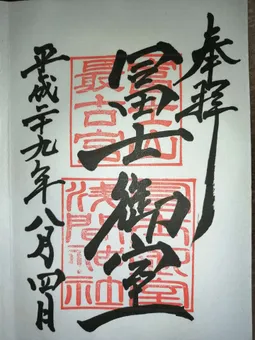 奉拝
冨士山
最古宮
冨士御室
冨士御室
浅間神社
平成二十九年八月四日